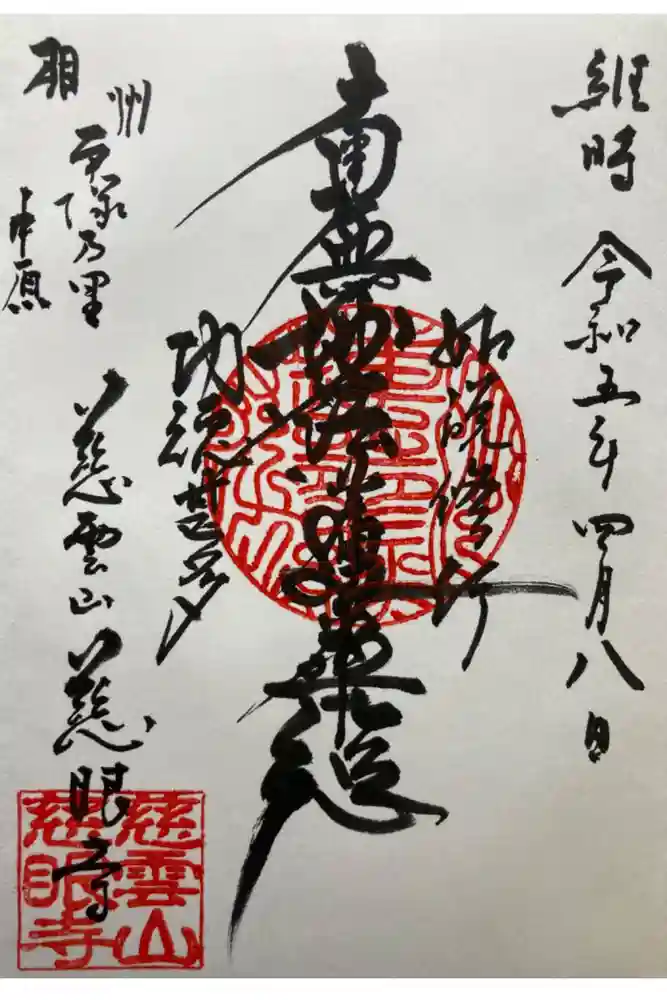 維時 令和五年四月八日
如説修行
南無妙法蓮華経
功徳甚多
相州
乃里
中原
慈雲山 慈眼寺
慈雲山
慈眼寺